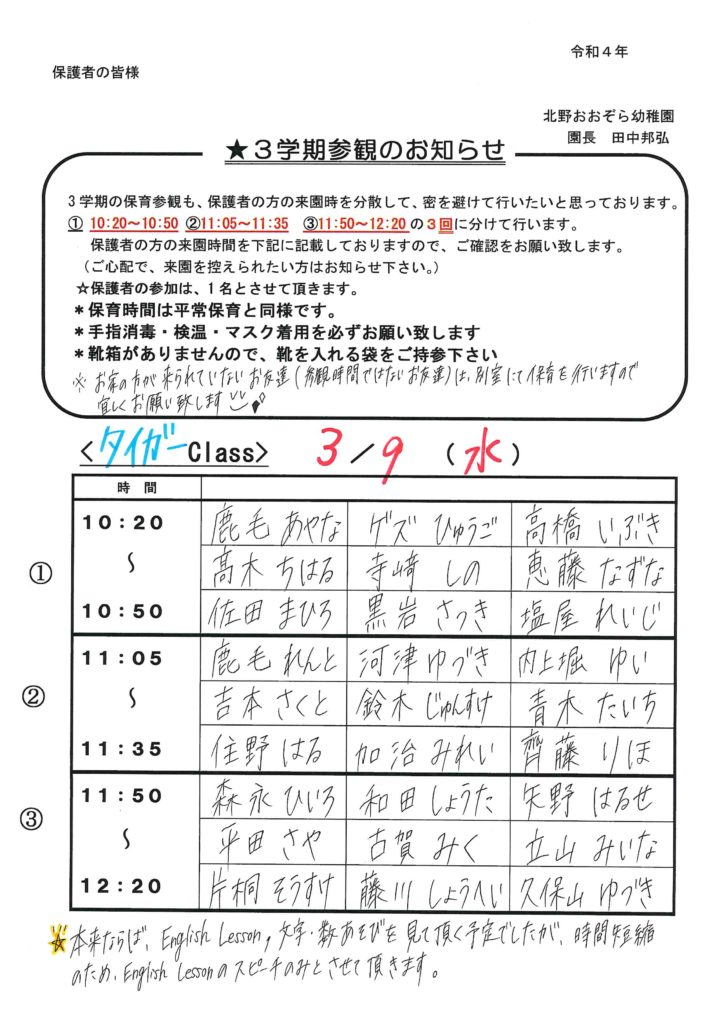 令和４年
保護者の皆様
北野おおぞら幼稚園
園長　田中邦弘
★３学期参観のお知らせ
３学期の保育参観も、保護者の方の来園時を分散して、密を避けて行いたいと思っております。
① 10:20～10:50 ②11:05～11:35 ③11:50～12:20 の３回に分けて行います。
保護者の方の来園時間を下記に記載しておりますので、ご確認をお願い致します。
（ご心配で、来園を控えられたい方はお知らせ下さい。）
☆保護者の参加は、１名とさせて頂きます。
＊保育時間は平常保育と同様です。
＊手指消毒・検温・マスク着用を必ずお願い致します
＊靴箱がありませんので、靴を入れる袋をご持参下さい
※ お家の方が来られていないお友達(参観時間ではないお友達)は、別室にて保育を行いますので
宜しくお願い致します
<タイガーClass> 3／9（水）
時　間
① 10：20 ～ 10：50
鹿毛 あやな ゲズ ひゅうご 高橋 いぶき
髙木 ちはる 寺﨑 しの 恵藤 なずな
佐田 まひろ 黒岩 さつき 塩屋 れいじ
② 11：05 ～ 11：35
鹿毛 れんと 河津 ゆづき 内上堀 ゆい
吉本 さくと 鈴木 じゅんすけ 青木 たいち
住野 はる 加治 みれい 齊藤 りほ
③ 11：50 ～ 12：20
森永 ひいろ 和田 しょうた 矢野 はるせ
平田 さや 古賀 みく 立山 みいな
片桐 そうすけ 藤川 しょうへい 久保山 ゆづき
☆本来ならば、English Lesson，文字・数あそびを見て頂く予定でしたが、時間短縮
のため、English Lessonのスピーチのみとさせて頂きます。